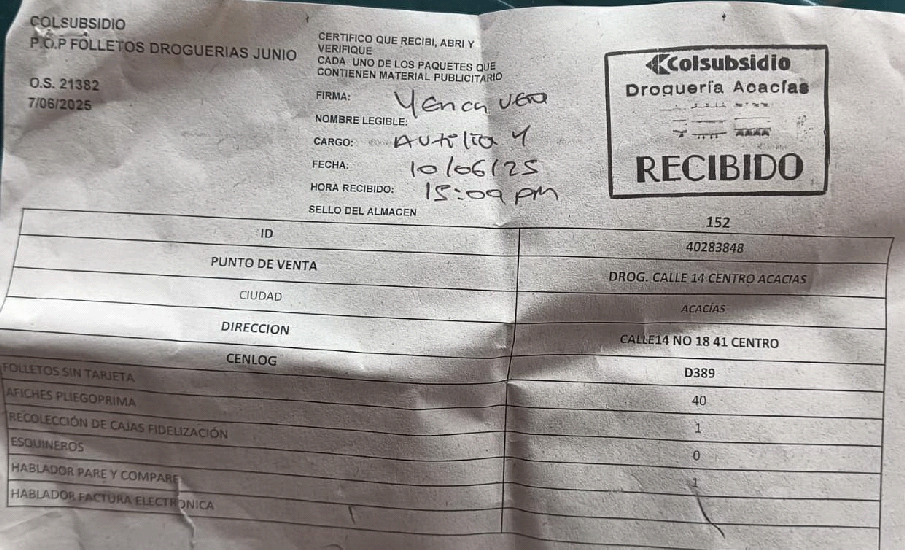 COLSUBSIDIO
P.O.P FOLLETOS DROGUERIAS JUNIO
O.S. 21382
7/06/2025
CERTIFICO QUE RECIBI, ABRI Y
VERIFIQUE
CADA UNO DE LOS PAQUETES QUE
CONTIENEN MATERIAL PUBLICITARIO
FIRMA: Yenca Vera
NOMBRE LEGIBLE:
CARGO:
FECHA: 10/06/25
HORA RECIBIDO: 15:09 pm
SELLO DEL ALMACEN
Colsubsidio
Droguería Acacías
RECIBIDO
152
ID 40283848
PUNTO DE VENTA DROG. CALLE 14 CENTRO ACACIAS
CIUDAD ACACÍAS
DIRECCION CALLE14 NO 18 41 CENTRO
CENLOG D389
FOLLETOS SIN TARJETA 40
AFICHES PLIEGOPRIMA 1
RECOLECCIÓN DE CAJAS FIDELIZACIÓN 0
ESQUINEROS 1
HABLADOR PARE Y COMPARE
HABLADOR FACTURA ELECTRONICA